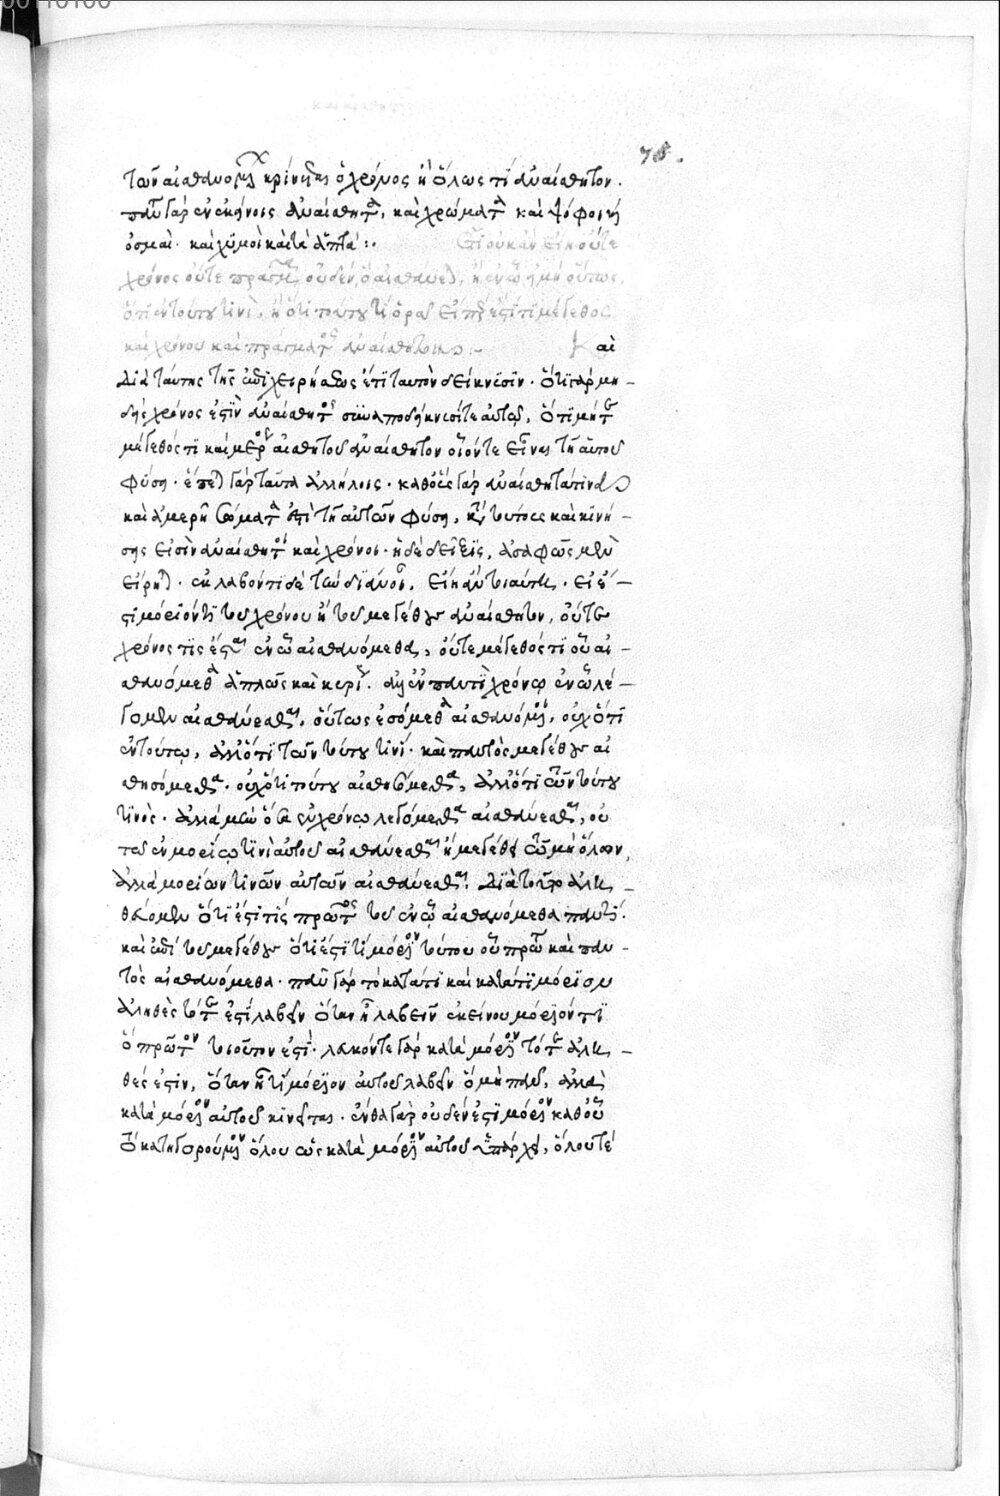 τῶν αἰσθανομένων κρίνεται ὁ χρόνος ἢ ὅλως τὶ ἀναίσθητον.
πᾶν γὰρ ἐν ἐκείνοις ἀναίσθητα, καὶ χρώματα καὶ ψόφοι ἢ
ὀσμαὶ. καὶ χυμοὶ καὶ τὰ ἁπτά:.
χρόνος οὔτε πρᾶγμα οὐδὲν, ὃ αἰσθάνεται, ἢ ἐν ᾧ ἢ μὴ οὕτως,
ὅτι ἐν τούτου τινὶ, ἢ ὅτι τούτου τὶ ὁρᾷ εἴπερ ἐστί τι μέγεθος
καὶ χρόνου καὶ πράγματος ἀναίσθητον:- Καὶ
διὰ ταύτης τῆς ἐπιχειρήσεως ἔτι ταυτὸν δείκνυσιν. ὅτι γὰρ μη-
δεὶς χρόνος ἐστὶν ἀναίσθητος
μέγεθός τι καὶ μέρος αἰσθητοῦ ἀναίσθητον οἷόν τε εἶναι τῇ αὐτοῦ
φύσει. ἕπεται γὰρ ταῦτα ἀλλήλοις. καθὸ εἰς γὰρ ἀναίσθητά τινα
καὶ ἀμερῆ σώματα ἐπὶ τῇ αὐτῶν φύσει, καὶ τύποις καὶ κινή-
σεις εἰσὶν ἀναίσθητοι καὶ χρόνοι. ἡ δὲ δεῖξις, ἀσαφῶς μὲν
εἴρηται. ἐκλαβόντι δὲ τὴν διάνοιαν, εἴη ἂν τοιαύτη. εἰ ἔ-
στι μόριόν τι τοῦ χρόνου ἢ τοῦ μεγέθους ἀναίσθητον, οὔτε
χρόνος τίς ἐστιν ἐν ᾧ αἰσθανόμεθα, οὔτε μέγεθός τι οὗ αἰ-
σθανόμεθα ἁπλῶς καὶ κυρίως. ἀεὶ ἐν παντὶ χρόνῳ ἐν ᾧ λέ-
γομεν αἰσθάνεσθαι, οὕτως ἐσόμεθα αἰσθανόμενοι, οὐχ ὅτι
ἐν τούτῳ, ἀλλ' ὅτι τῶν τούτου τινί. καὶ παντὸς μεγέθους αἰ
σθησόμεθα. οὐχ ὅτι τούτου αἰσθησόμεθα, ἀλλ' ὅτι τῶν τούτου
τινὸς. ἀλλὰ μὴν
τῶ ἐν μορίῳ τινὶ αὐτοῦ αἰσθάνεσθαι ἢ μεγέθους τῷ μὴ ὅλων,
ἀλλὰ μορίων τινῶν αὐτῶν αἰσθάνεσθαι. διὰ τοῦτο ἀλη-
θεύομεν ὅτι ἐστί τις πρῶτος τοῦ ἐν ᾧ αἰσθανόμεθα παντί.
καὶ ἐπὶ τοῦ μεγέθους ὅτι ἐστί τι μόριον τούτου οὗ πρώτου καὶ παν-
τὸς αἰσθανόμεθα. πᾶν γὰρ τὸ κατά τι καὶ κατά τι μόριον
ἀληθὲς τότε ἐστί λαβεῖν ὅταν ᾖ λαβεῖν ἐκείνου μόριόν τι
ὃ πρῶτον τοιοῦτον ἐστὶ. λακόντες γὰρ κατὰ μόριον τότε ἀλη-
θές ἐστιν, ὅταν ᾖ τι μόριον αὐτοῦ λαβεῖν ὃ μὴ πᾶν, ἀλλὰ
κατὰ μόριον αὐτοῦ κινεῖται. ἔνθα γὰρ οὐδέν ἐστι μόριον καθ' οὗ
τὸ κατηγορούμενον ὅλου ὡς κατὰ μόριον αὐτοῦ ὑπάρχει, ὅλου τέ